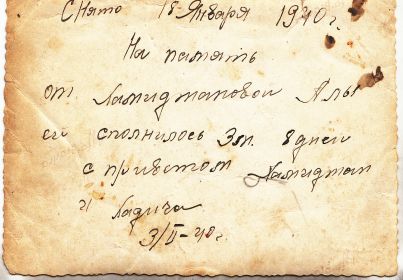 Снято 18 Января 1940 г.
На память
от Хамиджановой Алы
ей сполнилось 3 г. 8 дней
с приветом Хамиджан
и Хадича
3/II-40 г.